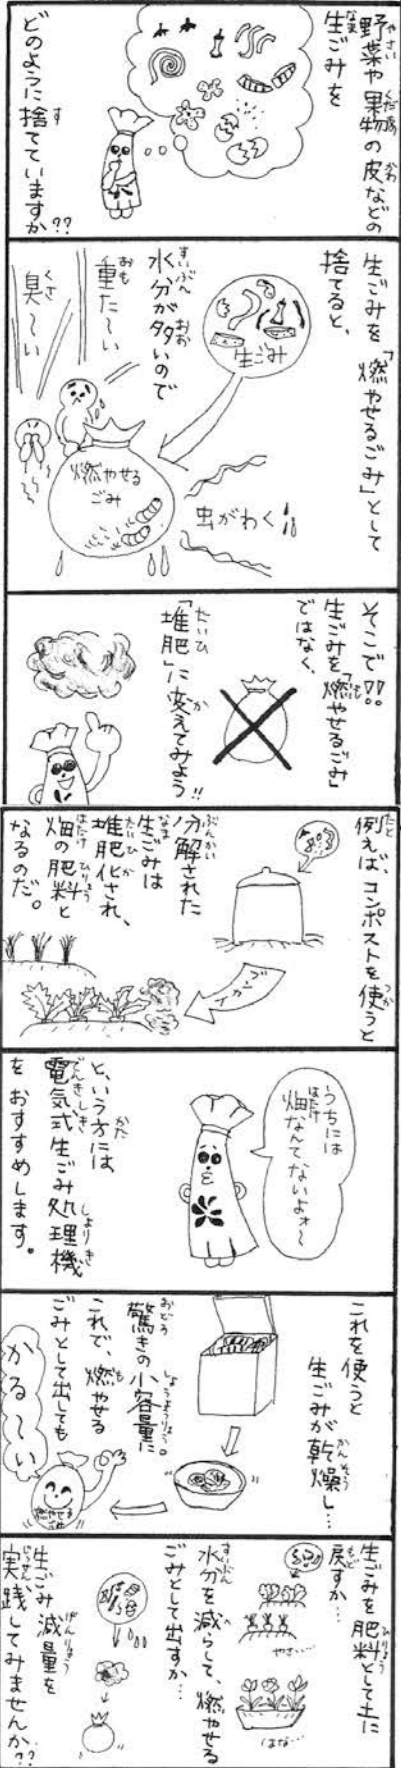 野菜や果物の皮などの
生ごみを
どのように捨てていますか??
生ごみを「燃やせるごみ」として
捨てると、
生ごみ
水分が多いので
重た〜い
臭〜い
燃やせる
ごみ
虫がわく!!
そこで!!
生ごみを「燃やせるごみ」
ではなく、
「堆肥」に変えてみよう!!
例えば、コンポストを使うと
ブンカイ
分解された
生ごみは
堆肥化され、
畑の肥料と
なるのだ。
うちには
畑なんてないよォ〜
と、いう方には
電気式生ごみ処理機
をおすすめします。
これを使うと
生ごみが乾燥し…
驚きの小容量に。
これで、燃やせる
ごみとして出しても
かる〜い
燃やせる
ごみ
生ごみを肥料として土に
戻すか…
やさい…
はな…
水分を減らして、燃やせる
ごみとして出すか…
生ごみ減量を
実践してみませんか??